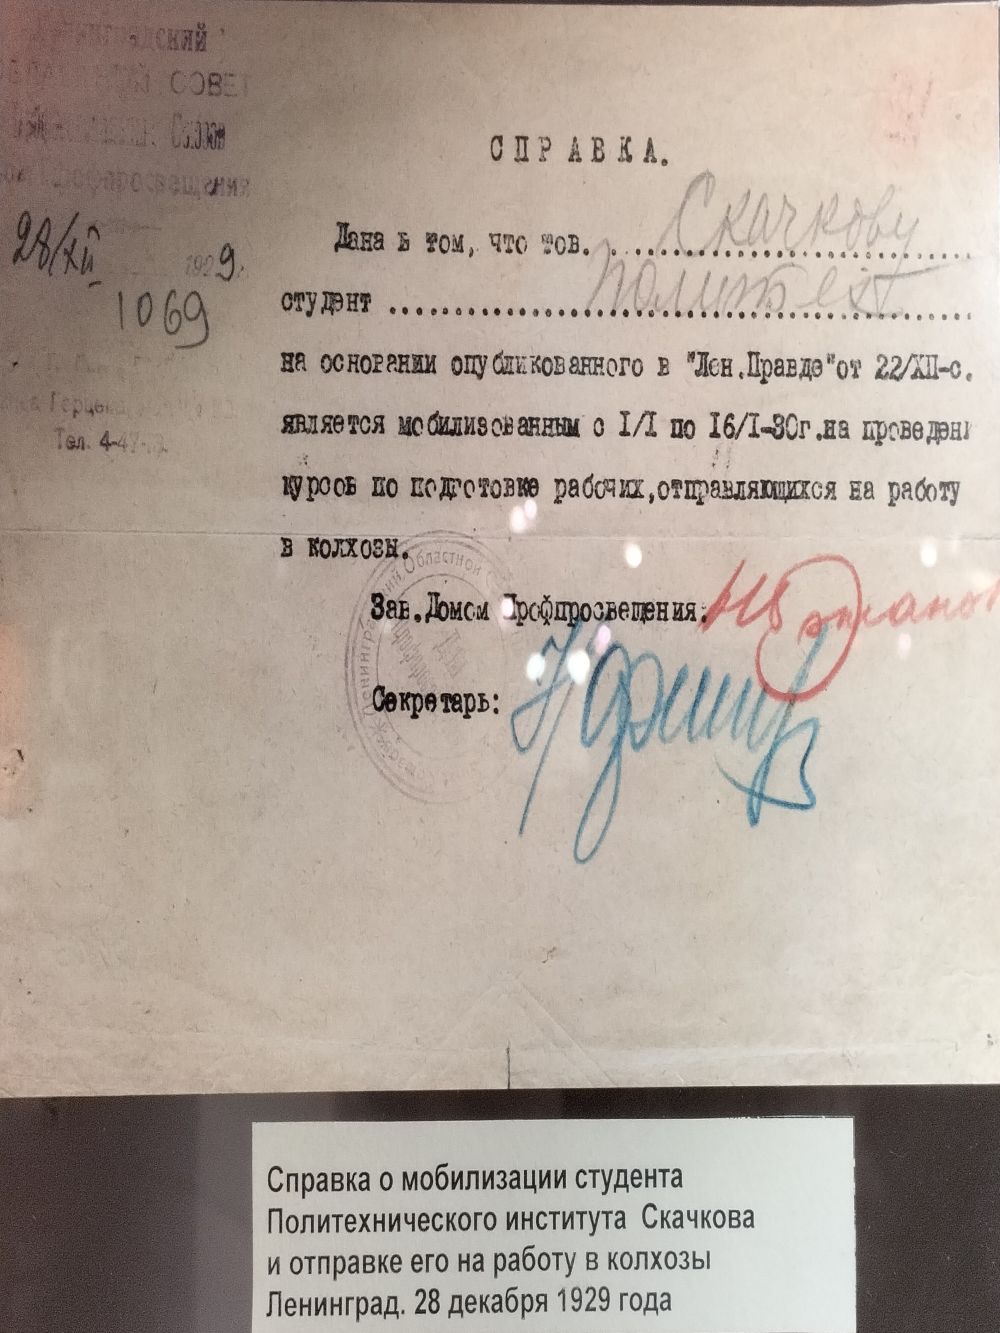 СОВЕТ
28/XII 1929г.
1069
Тел. 4-47-
СПРАВКА.
Дана в том, что тов. Скачкову
студент Политехн
на основании опубликованного в "Лен.Правде"от 22/XII-с.
является мобилизованным с I/I по 16/I-30г.на проведен
курсов по подготовке рабочих,отправляющихся на работу
в колхозы.
Зав.Домом Профпросвещения:
Секретарь:
Справка о мобилизации студента
Политехнического института Скачкова
и отправке его на работу в колхозы
Ленинград. 28 декабря 1929 года